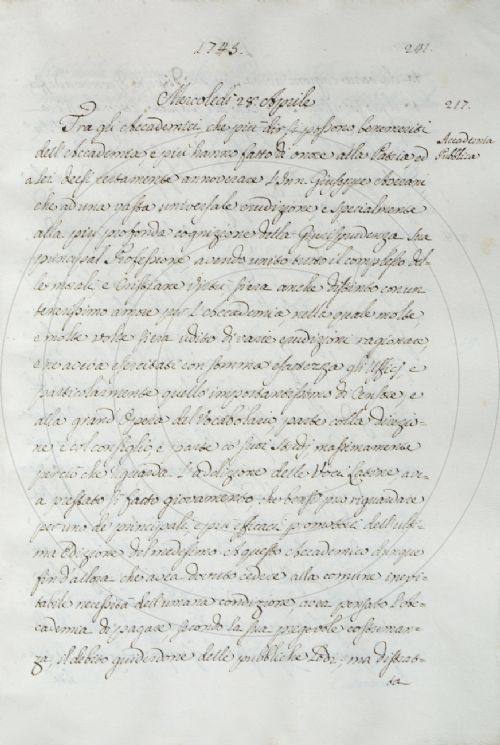 1745.
241.
Mercoledì 28 Aprile
217.
Accademia
Pubblica
Tra gli Accademici, che più dir si possono benemeriti
dell'Accademia e più hanno fatto di onore alla Patria ed
a lei deesi certamente annoverare l'Inn. Giuseppe Averani
che ad una vasta universale erudizione, e specialmente
alla più profonda cognizione della Giurisprudenza sua
principal Professione avendo unito tutto il complesso del-
le morali e Cristiane Virtù s'era anche distinto con un
tenerissimo amore per l'Accademia, nella quale molte,
e molte volte s'era udito di varie erudizioni ragionare,
e ne aveva esercitate con somma esattezza gli Uffici e
particolarmente quello importantissimo di Censore, e
alla grand'Opera del Vocabolario parte colla direzio-
ne e col consiglio, e parte co' suoi Studj massimamente
perciò che riguarda l'adozione delle Voci Latine ave-
va prestato sì fatto giovamento, che bensì può riguardarsi
per uno de' principali, e più efficaci promotori dell'ulti-
ma Edizione del medesimo. A questo Accademico dunque
fin d'allora che avea dovuto cedere alla comune inevi-
tabile necessità dell'umana condizione avea pensato l'Ac-
cademia di pagare secondo la sua pregevole costuman-
za, il debito guiderdone delle pubbliche Lodi; ma distrat-
ta